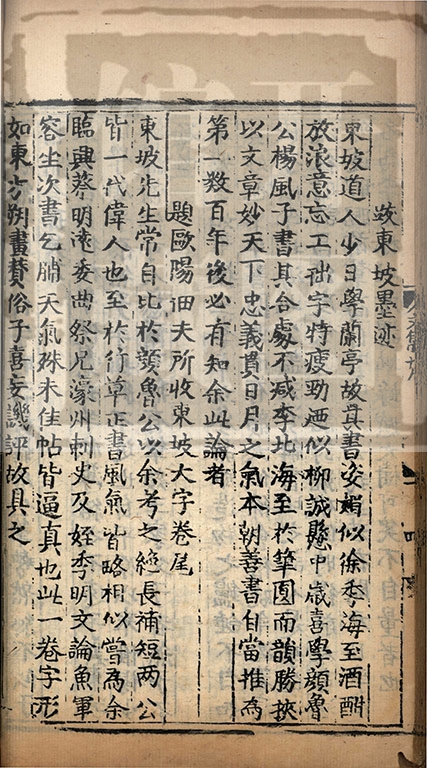 跋東坡墨迹
東坡道人少日學蘭亭故真書姿媚似徐季海至酒酣
放浪意忘工拙字特瘦勁迺似柳誠懸中歲喜學顏魯
公楊風子書其合處不减李北海至於筆圓而韻勝挾
以文章妙天下忠義貫日月之氣本朝善書自當推為
第一數百年後必有知余此論者
題歐陽佃夫所收東坡大字卷尾
東坡先生常自比於顏魯公以余考之絶長補短两公
皆一代偉人也至於行草正書風氣皆略相似嘗為余
臨與蔡明遠委曲祭兄濠州刺史及姪季明文論魚軍
容生次書乞脯天氣殊未佳帖皆逼真也此一卷字形
如東方朔畫賛俗子喜妄譏評故具之